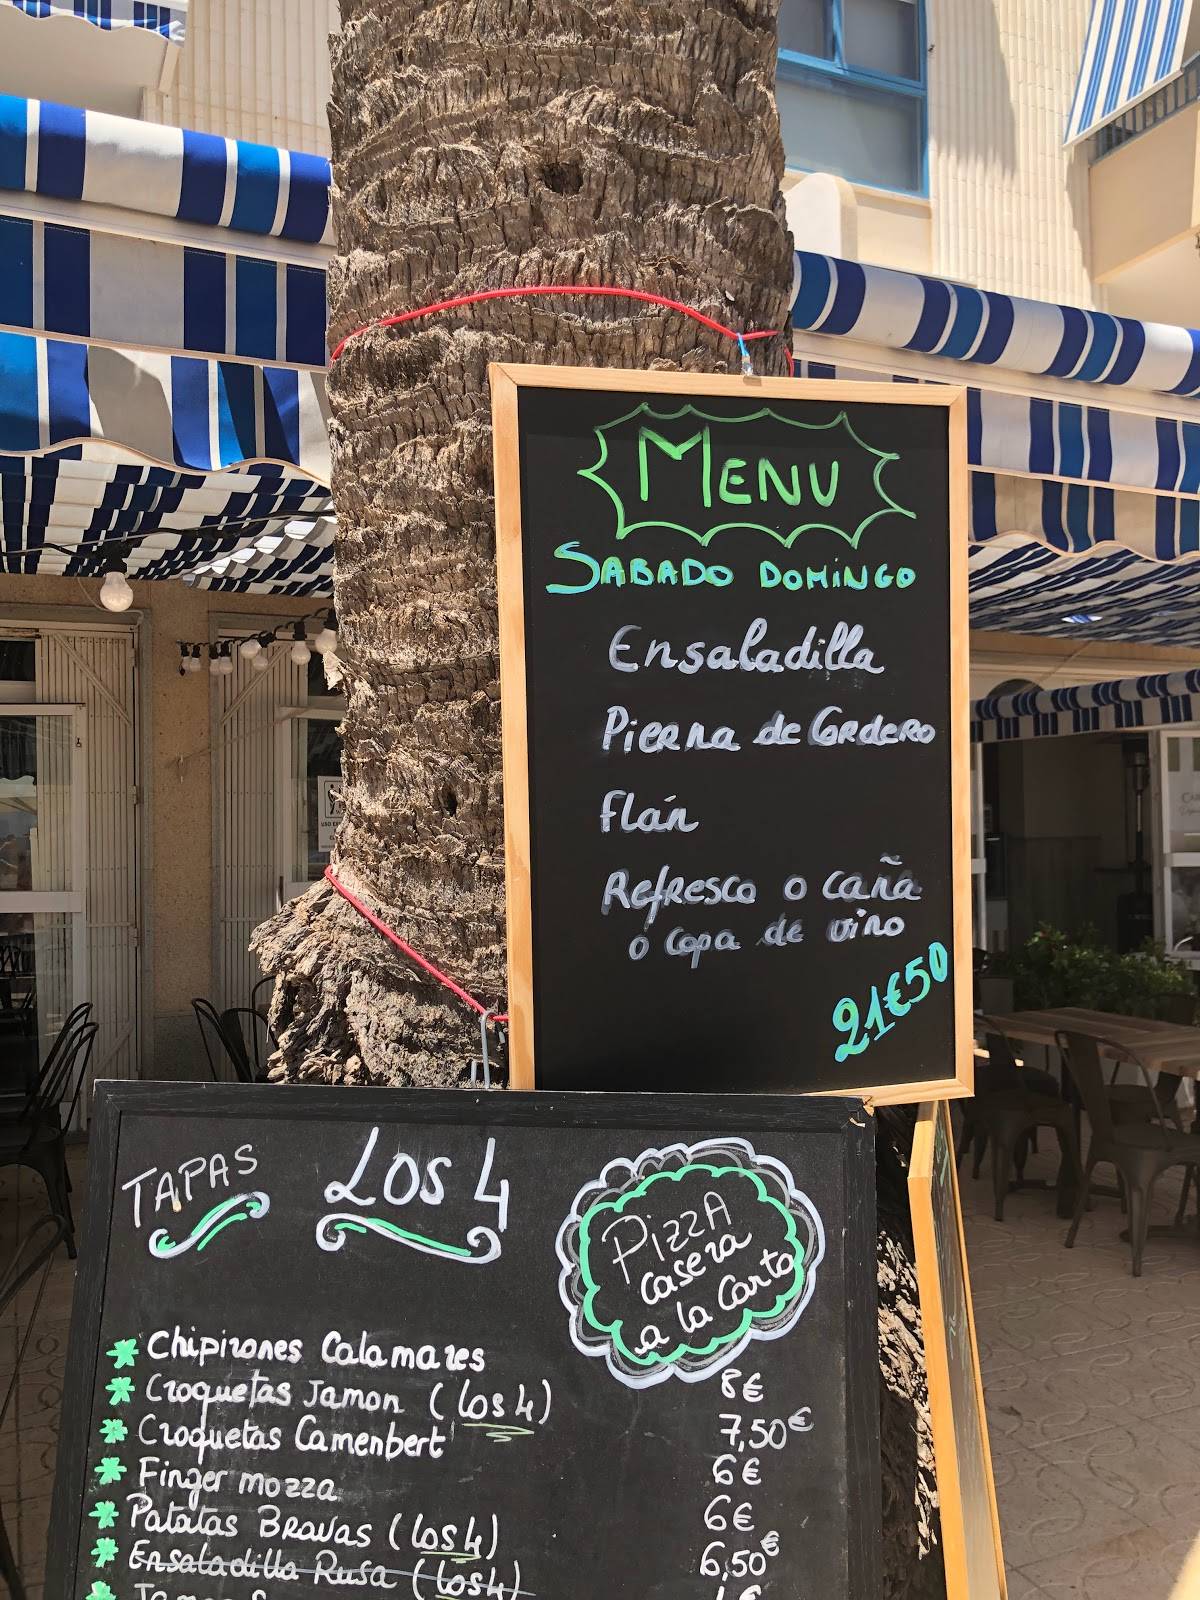 MENU
SABADO DOMINGO
Ensaladilla
Pierna de Cordero
Flán
Refresco o caña
o copa de vino
21€50
TAPAS
LOS 4
Pizza
casera
a la Carta
Chipirones Calamares
8€
Croquetas Jamon (Los 4)
7,50€
Croquetas Camenbert
6€
Finger mozza
6€
Patatas Bravas (Los 4)
6,50€
Ensaladilla Rusa (Los 4)